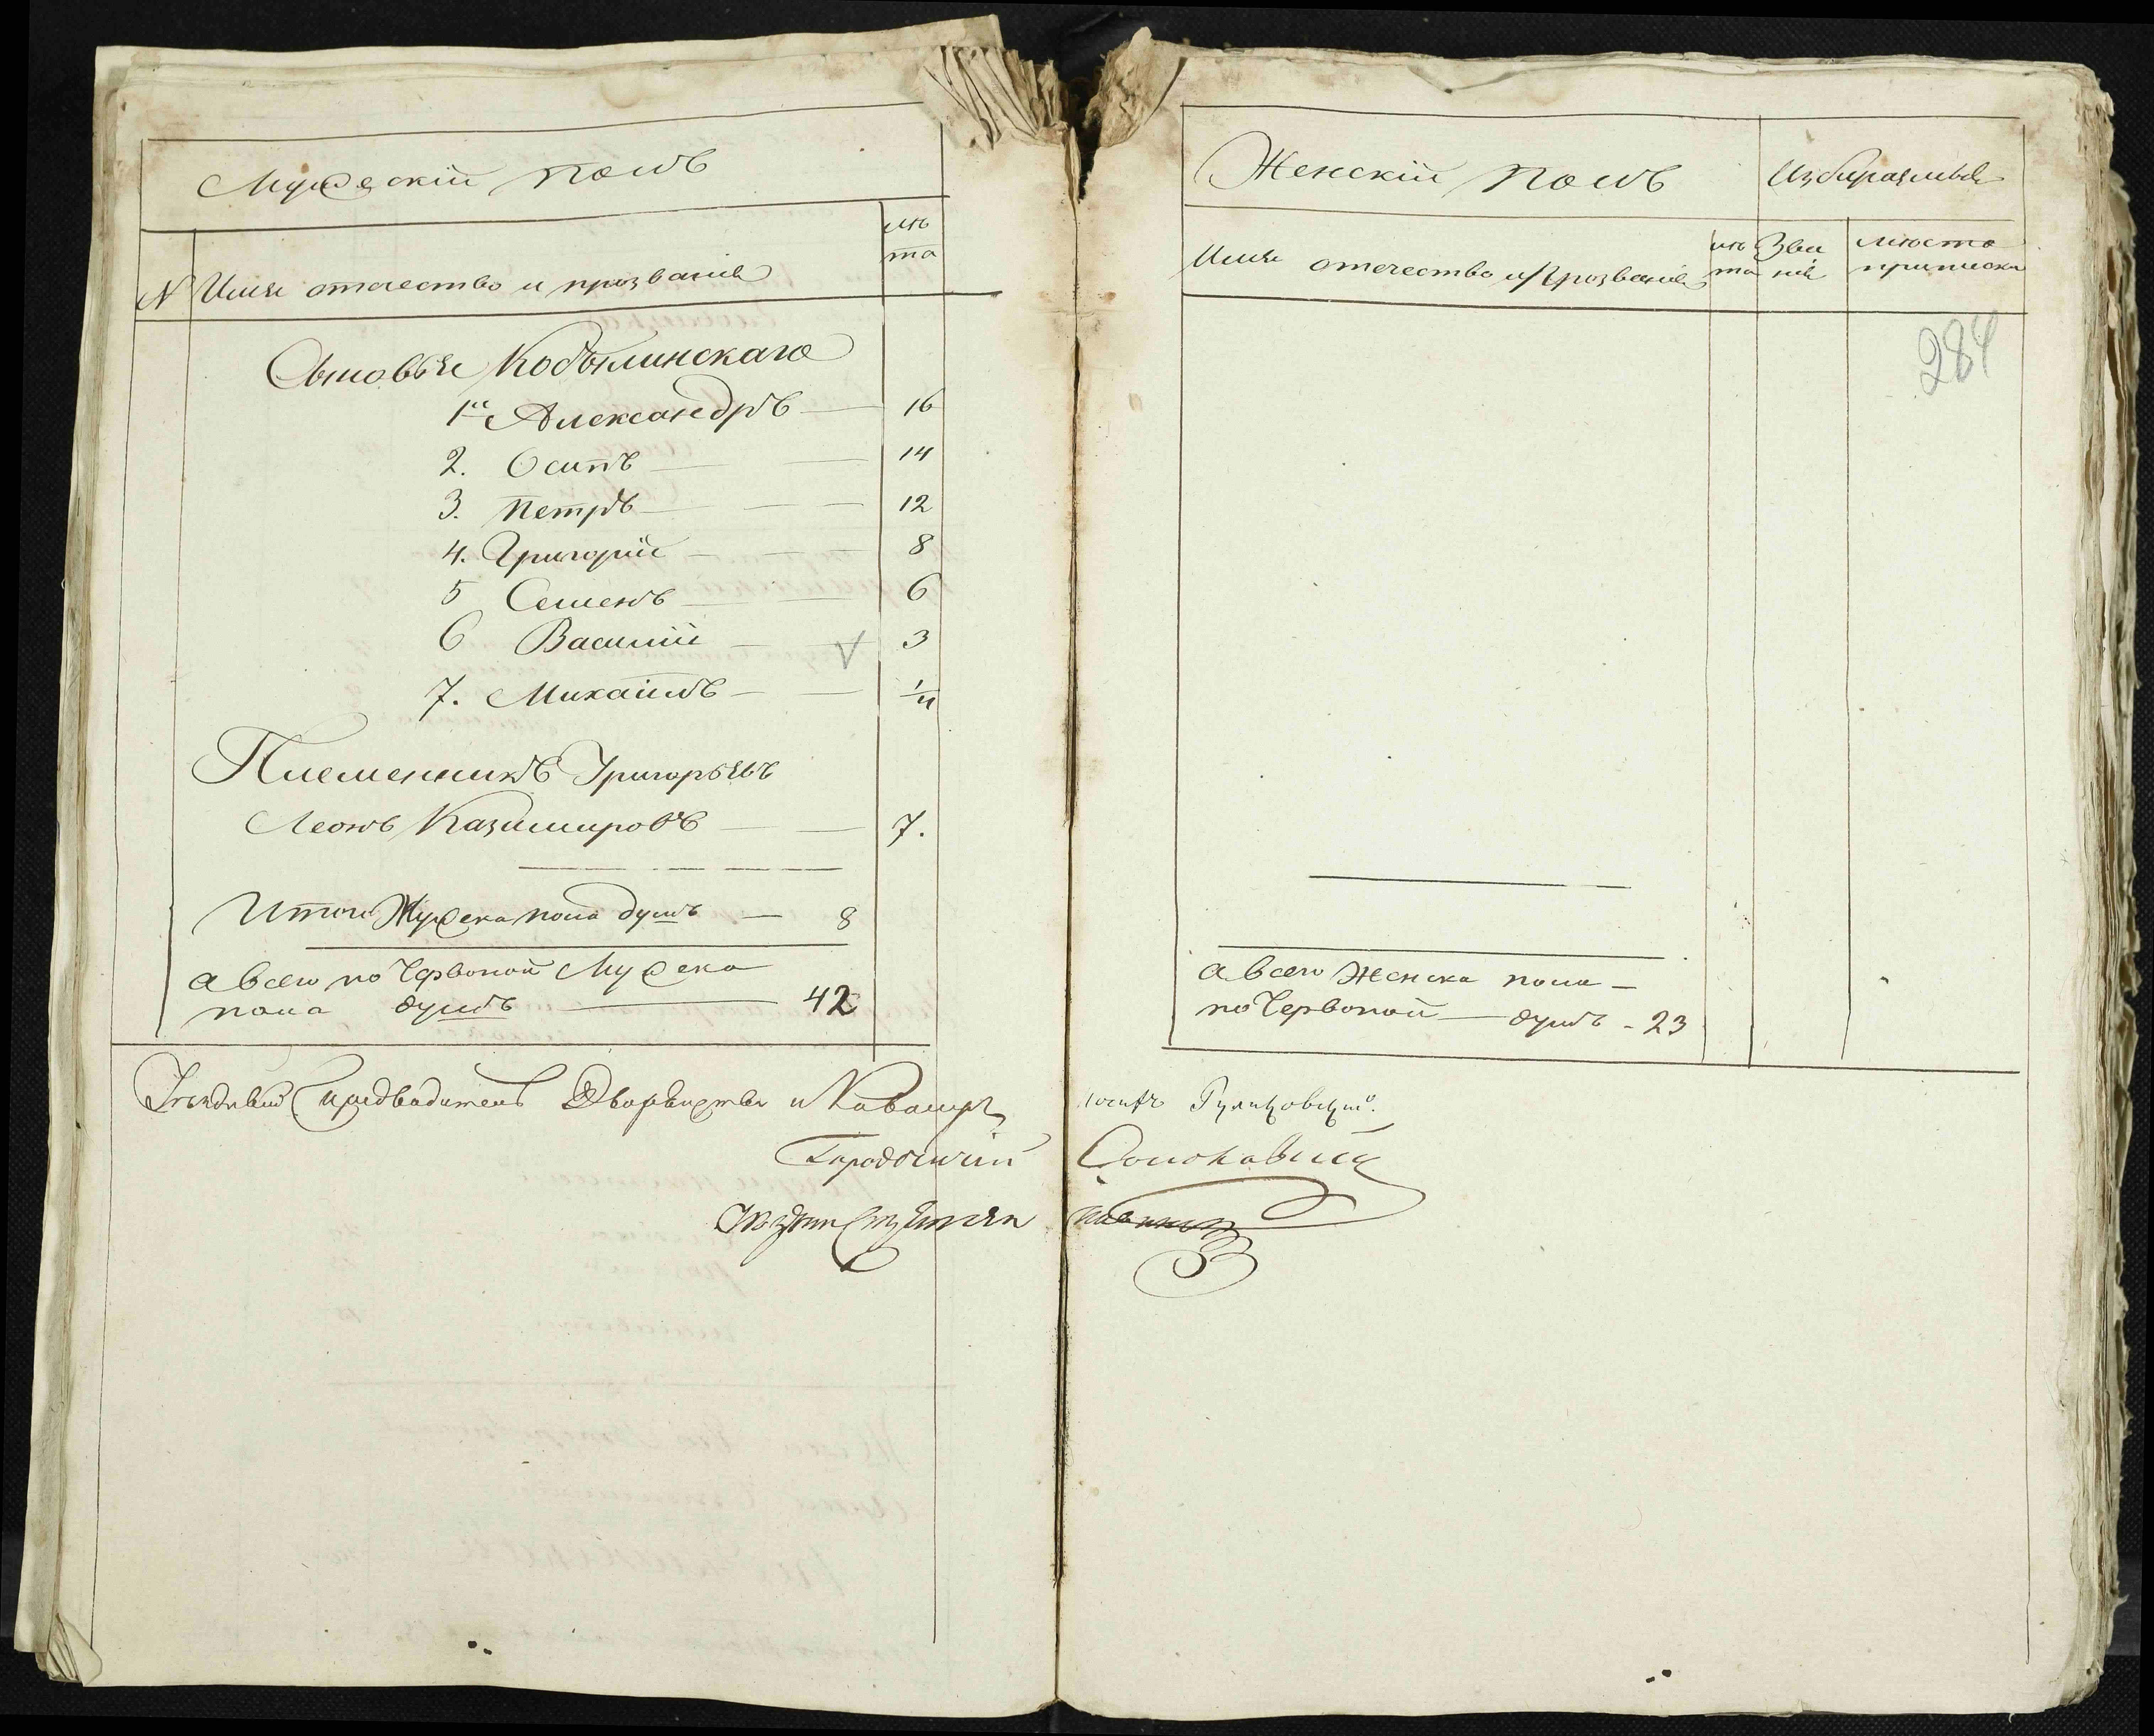 Мужескій полъ
лѣ
та
N Имя отчество и прозваніе
Сыновья Кобылинскаго
1й Александръ 16
2. Осипъ 14
3. Петръ 12
4. Григорій 8
5 Семенъ 6
6 Василій 3
7. Михаилъ
Племенникъ Григорьевъ
Леонъ Казимировъ 7.
Итого Мужеска пола душъ 8
а всего по Червоной Мужеска
пола душъ 42
Женскій полъ
Имя отчество и прозваніе
лѣ
та
Зва
ніе
мѣсто
приписки
284
а всего Женска пола
по Червоной душъ - 23
Уѣздный предводитель Дворянства и Кавалеръ
Городничій